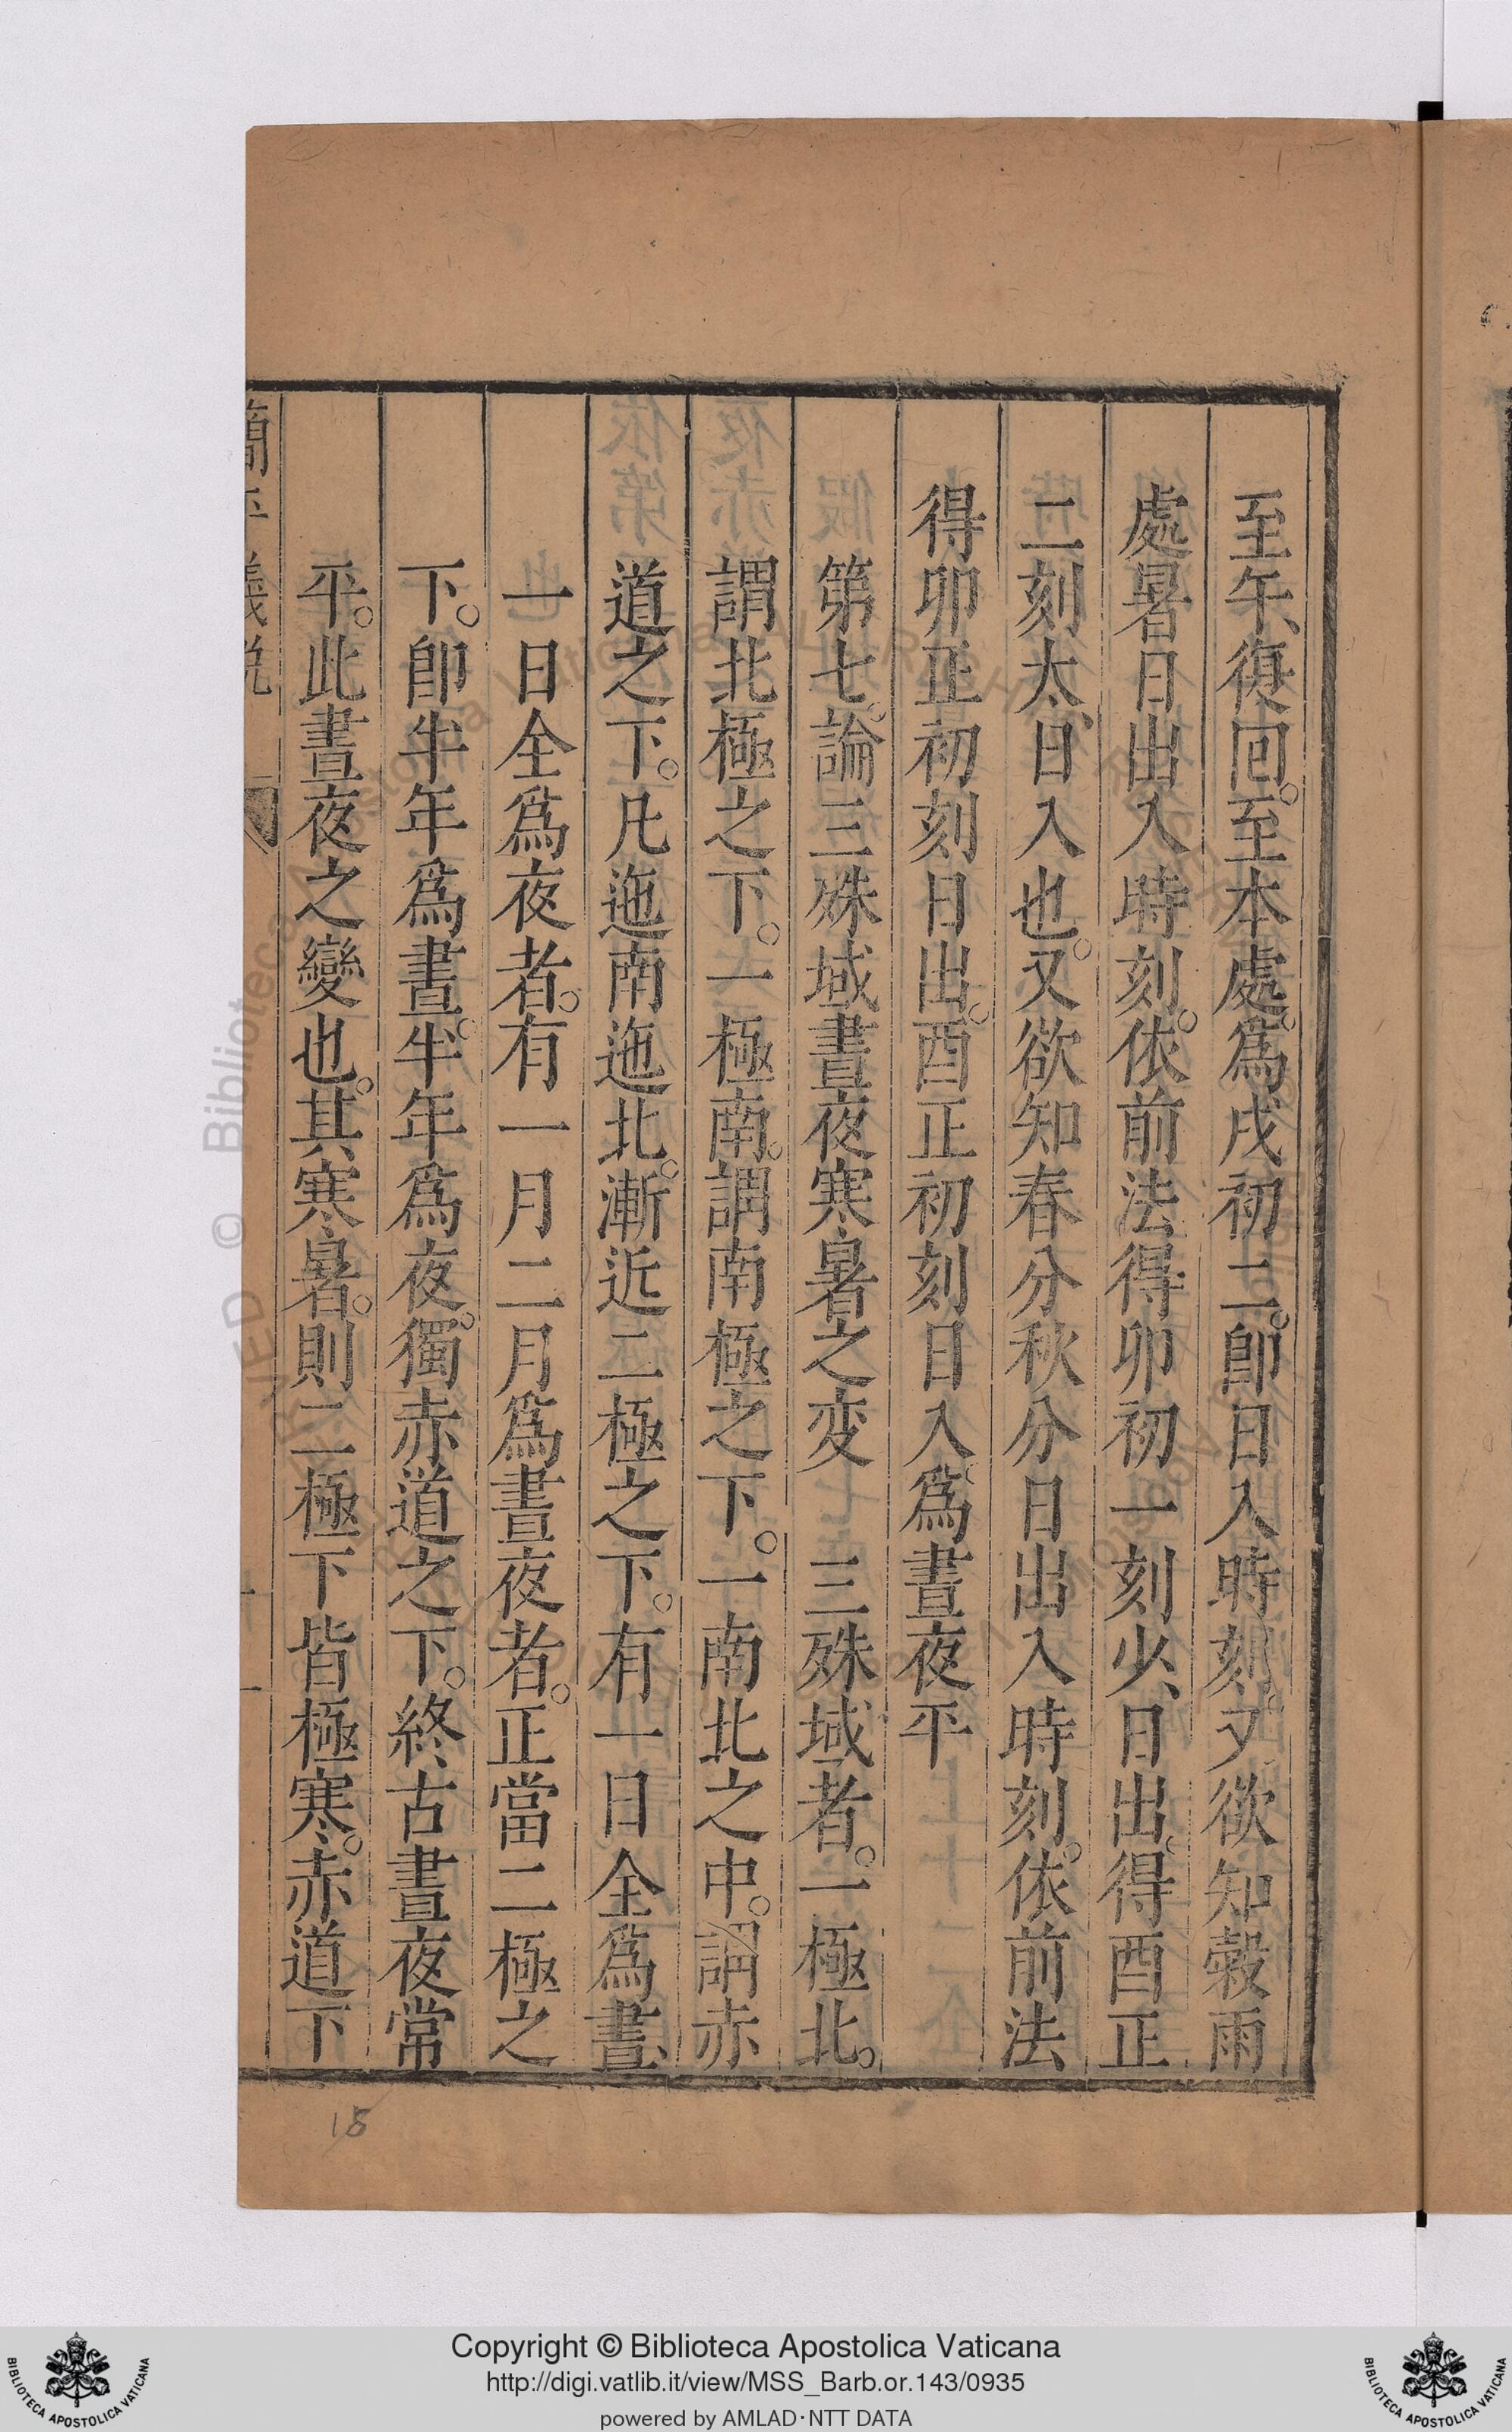 至午、復回。至本處。爲戌初二。卽日入時刻。又欲知穀雨
處暑日出入時刻。依前法得卯初一刻少、日出。得酉正
二刻太、日入也。又欲知春分秋分日出入時刻。依前法
得卯正初刻日出。酉正初刻日入。爲晝夜平
第七。論三殊域晝夜寒暑之变　三殊域者。一極北。
謂北極之下。一極南。謂南極之下。一南北之中。謂赤
道之下。凡迤南迤北。漸近二極之下。有一日全爲晝、
一日全爲夜者。有一月二月爲晝夜者。正當二極之
下。卽半年爲晝。半年爲夜。獨赤道之下。終古晝夜常
平。此晝夜之變也。其寒暑。則二極下皆極寒。赤道下
簡平儀說
15
Copyright © Biblioteca Apostolica Vaticana
http://digi.vatlib.it/view/MSS_Barb.or.143/0935
powered by AMLAD·NTT DATA
BIBLIOTECA APOSTOLICA VATICANA
BIBLIOTECA APOSTOLICA VATICANA